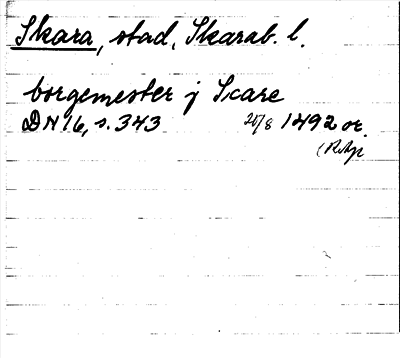 Skara, stad, Skarab. l.
borgemester j Scare
DN 16, s. 343 20/8 1492 or.
(RAp